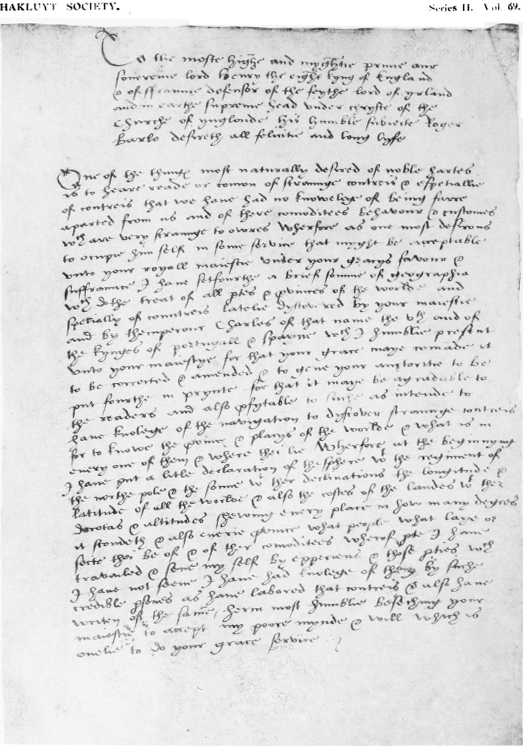 HAKLUYT SOCIETY.
Series II. Vol. 69.
To the moste highe and myghtie prince our
sovereine lord Henry the eight kyng of England
& of ffraunce defensor of the feythe lord of yrland
and in earthe supreme head under chryste of the
Churche of ynglonde his humble subiecte Roger
Barlo desireth all felicitie and long lyfe
One of the things most naturally desired of noble hartes
is to heare reade or comon of straunge contreis & especiallie
of contreis that we have had no knowelege of being farre
aparted from us and of there comodities behavour & customes
wch are very straunge to owres wherfore as one most desirous
to occupie him self in some service that might be acceptable
unto your royall maiestie under your graces favour &
suffraunce I have setfourthe a brief somme of geographia
wch dothe treat of all ptes & provinces of the worlde and
specially of countreis latelie dyscovered by your maiestie
and by themperour Charles of that name the vth and of
the kynges of portugall & spayne wch I humblie present
unto your maiestye for that your grace maye comande it
to be corrected & amended & to geve your auctoritie to be
put fourthe in prynte for that it maye be agreable to
the readers and also profytable to suche as intende to
have knolege of the navigation to dyscover straunge contreis
for to knowe the pvince & placys of the worlde & what is in
every one of them & where thei lie Wherfore at the beginnyng
I have put a litle declaration of the sphere wt the regiment of
the northe pole & the sonne wt ther declinations the longitude &
latitude of all the worlde & also the costes of the landes wt ther
derotas & altitudes shewing every place in how many degrees
it stondeth & also everie pvince what people what lawe or
secte thei be of & of their comodities wherof pte I have
travailed & sene my self by experiens & those pties wch
I have not seene I have had knolege of them by suche
credible psones as have labored that contreis & also have
writen of the same, herin most humblie beseching your
maiestie to accept my poore mynde & will which is
onelie to do your grace service